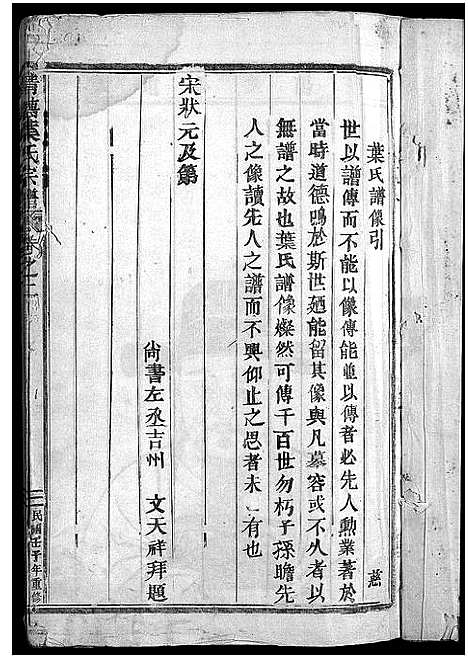 葉氏譜像引
慈
世以譜傳而不能以像傳能並以傳者必先人勲業著於
當時道德鳴於斯世廼能留其像與凡墓容或不久者以
無譜之故也葉氏譜像燦然可傳千百世勿朽子孫瞻先
人之像讀先人之譜而不興仰止之思者未一有也
宋狀元及第
尙書左丞吉州 文天祥拜題
葉氏宗譜 卷之二
民國壬子年重修